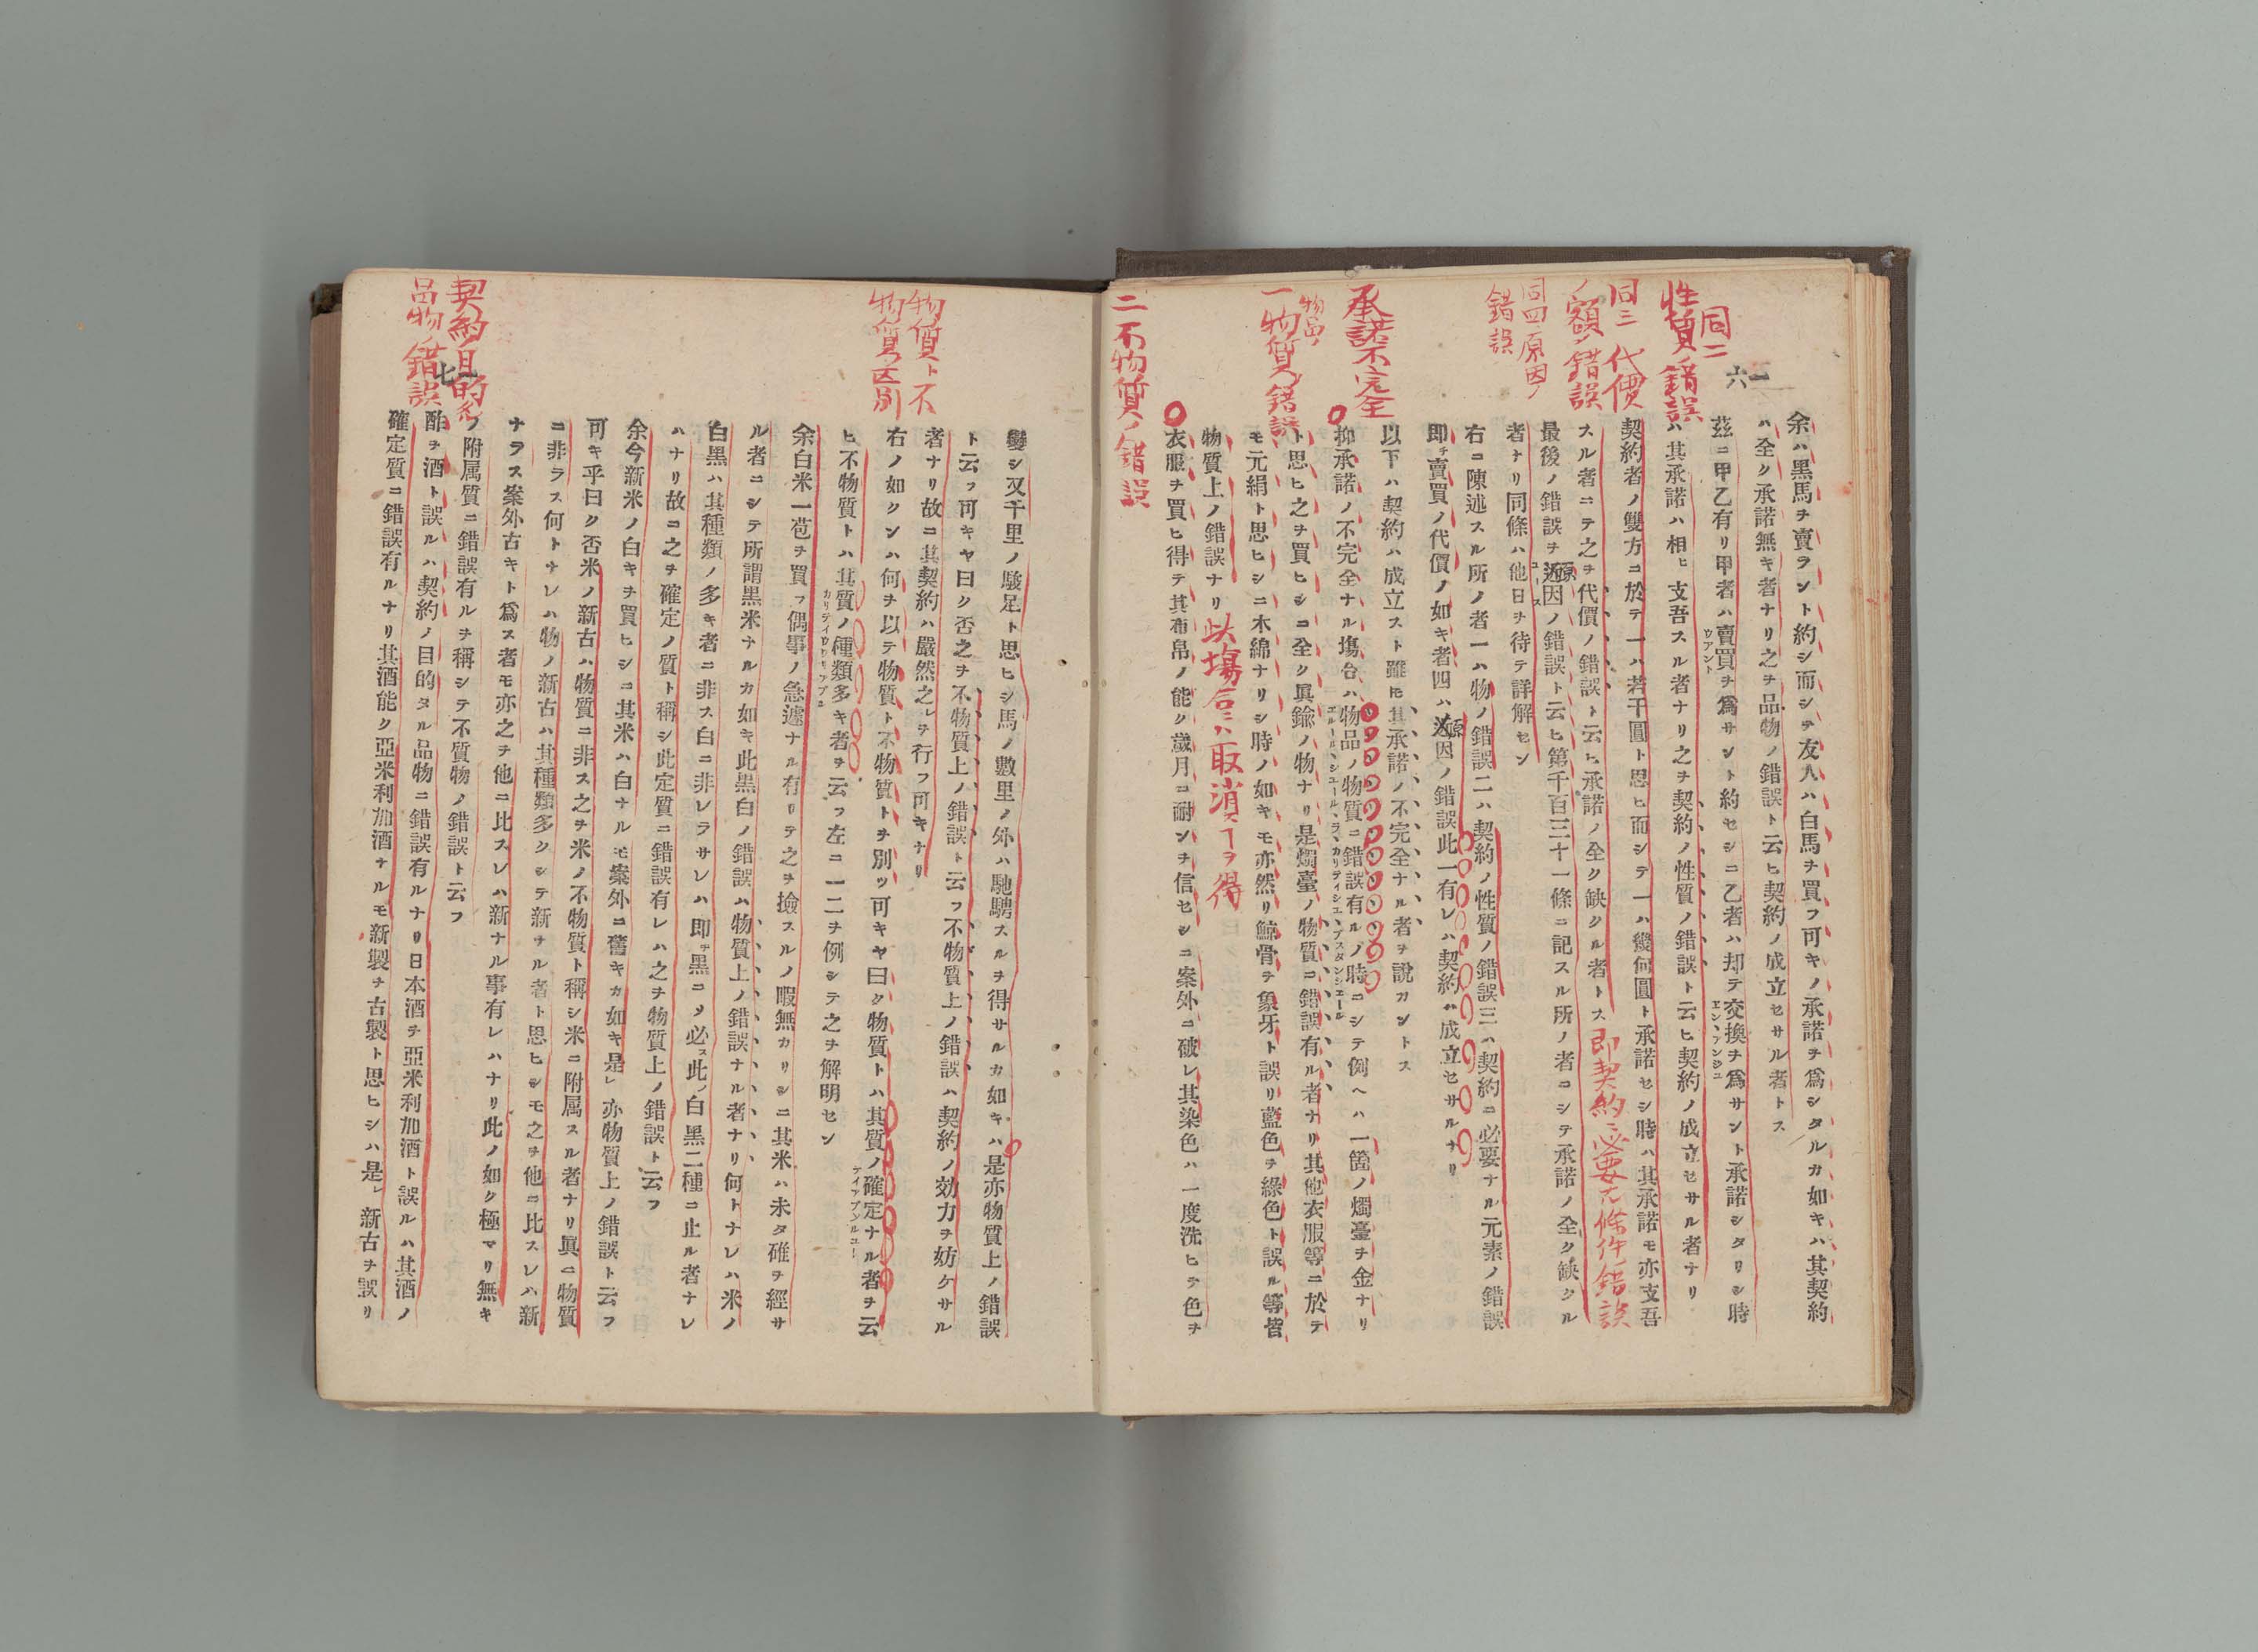 一六
同二
性質ノ錯誤
同三 代價
ノ額ノ錯誤
同四原因ノ
錯誤
承諾不完全
物品ノ
一物質ノ錯誤
二不物質ノ錯誤
余ハ黒馬ヲ賣ラント約シ而シテ友人ハ白馬ヲ買フ可キノ承諾ヲ爲シタルカ如キハ其契約
ハ全ク承諾無キ者ナリ之ヲ品物ノ錯誤ト云ヒ契約ノ成立セサル者トス
茲ニ甲乙有リ甲者ハ賣買ヲ爲サント約セシニ乙者ハ却テ交換ヲ爲サント承諾シタリシ時
ハ其承諾ハ相ヒ支吾スル者ナリ之ヲ契約ノ性質ノ錯誤ト云ヒ契約ノ成立セサル者ナリ
契約者ノ雙方ニ於テ一ハ若干圓ト思ヒ而シテ一ハ幾何圓ト承諾セシ時ハ其承諾モ亦支吾
スル者ニテ之ヲ代價ノ錯誤ト云ヒ承諾ノ全ク缺クル者トス 即契約ニ必要ナル條件ノ錯誤
最後ノ錯誤ヲ原因ノ錯誤ト云ヒ第千百三十一條ニ記スル所ノ者ニシテ承諾ノ全ク缺クル
者ナリ同條ハ他日ヲ待テ詳解セン
右ニ陳述スル所ノ者一ハ物ノ錯誤二ハ契約ノ性質ノ錯誤三ハ契約ニ必要ナル元素ノ錯誤
即チ賣買ノ代價ノ如キ者四ハ原因ノ錯誤此一有レハ契約ハ成立セサルナリ
以下ハ契約ハ成立スト雖ヒ其承諾ノ不完全ナル者ヲ説カントス
抑承諾ノ不完全ナル塲合ハ物品ノ物質ニ錯誤有ルノ時ニシテ例ヘハ一箇ノ燭臺ヲ金ナリ
ト思ヒ之ヲ買ヒシニ全ク眞鍮ノ物ナリ是燭臺ノ物質ニ錯誤有ル者ナリ其他衣服等ニ於テ
モ元絹ト思ヒシニ木綿ナリシ時ノ如キモ亦然リ鯨骨ヲ象牙ト誤リ藍色ヲ綠色ト誤ル等皆
物質上ノ錯誤ナリ 此塲合ニハ取消ヿヲ得
衣服ヲ買ヒ得テ其布帛ノ能ク歲月ニ耐ンヲ信セシニ案外ニ破レ其染色ハ一度洗ヒテ色ヲ
物質ト不
物質ノ區別
契約ノ目的タル
品物ノ錯誤
一七
變シ又千里ノ駿足ト思ヒシ馬ノ數里ノ外ハ馳騁スルヲ得サルカ如キハ是亦物質上ノ錯誤
ト云フ可キヤ曰ク否之ヲ不物質上ノ錯誤ト云フ不物質上ノ錯誤ハ契約ノ効力ヲ妨ケサル
者ナリ故ニ其契約ハ嚴然之レヲ行フ可キナリ
右ノ如クンハ何ヲ以テ物質ト不物質トヲ別ツ可キヤ曰ク物質トハ其質ノ確定ナル者ヲ云
ヒ不物質トハ其質ノ種類多キ者ヲ云フ左ニ一二ヲ例シテ之ヲ解明セン
余白米一苞ヲ買フ偶事ノ急遽ナル有リテ之ヲ撿スルノ暇無カリシニ其米ハ未タ碓ヲ經サ
ル者ニシテ所謂黒米ナルカ如キ此黒白ノ錯誤ハ物質上ノ錯誤ナル者ナリ何トナレハ米ノ
白黒ハ其種類ノ多キ者ニ非ス白ニ非レラサレハ即チ黒ニメ必ス此ノ白黒二種ニ止ル者ナレ
ハナリ故ニ之ヲ確定ノ質ト稱シ此定質ニ錯誤有レハ之ヲ物質上ノ錯誤ト云フ
余今新米ノ白キヲ買ヒシニ其米ハ白ナルモ案外ニ舊キカ如キ是レ亦物質上ノ錯誤ト云フ
可キ乎曰ク否米ノ新古ハ物質ニ非ス之ヲ米ノ不物質ト稱シ米ニ附属スル者ナリ眞ニ物質
ニ非ラス何トナレハ物ノ新古ハ其種類多クシテ新ナル者ト思ヒシモ之ヲ他ニ比スレハ新
ナラス案外古キト爲ス者モ亦之ヲ他ニ比スレハ新ナル事有レハナリ此ノ如ク極マリ無キ
ノ附属質ニ錯誤有ルヲ稱シテ不質物ノ錯誤ト云フ
酢ヲ酒ト誤ルハ契約ノ目的タル品物ニ錯誤有ルナリ日本酒ヲ亞米利加酒ト誤ルハ其酒ノ
確定質ニ錯誤有ルナリ其酒能ク亞米利加酒ナルモ新製ヲ古製ト思ヒシハ是レ新古ヲ誤リ